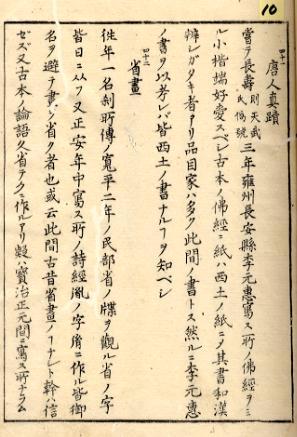 10
四十一
唐人真蹟
嘗テ長壽則天武氏偽號三年雍州長安縣李元惠寫ス所ノ佛經ヲミ
ル小楷端好愛スベシ古本ノ佛經ニ紙ハ西土ノ紙ニ乄其書和漢
辨レガタキ者アリ品目家ハ多ク此間ノ書トス然ルニ李元惠
ノ書ヲ以考レバ皆西土ノ書ナルヿヲ知ベシ
四十二
省畫
徃年一名刹所傳ノ寬平二年ノ民部省ノ牒ヲ觀ル省ノ字
皆日ニ从フ又正安年中寫ス所ノ詩經胤ノ字ニ作ル皆御
名ヲ避テ畫ヲ省ク者也或云此間古昔省畫ノヿナシト幹ハ信
ゼズ又古本ノ論語久省テクニ作ルアリ殷ハ寶治正元間ニ寫ス所ナラム